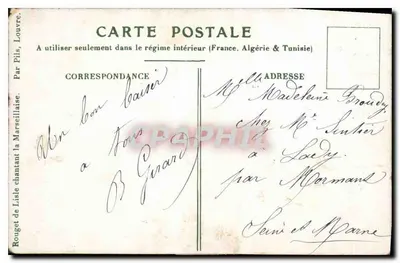 CARTE POSTALE
A utiliser seulement dans le régime intérieur (France, Algérie & Tunisie)
CORRESPONDANCE
Un bon baiser
a tous
B Girard
ADRESSE
Melle Madeleine
chez Mr Sentier
à
par Mormant
Seine et Marne
Rouget de Lisle chantant la Marseillaise. Par Pils, Louvre.